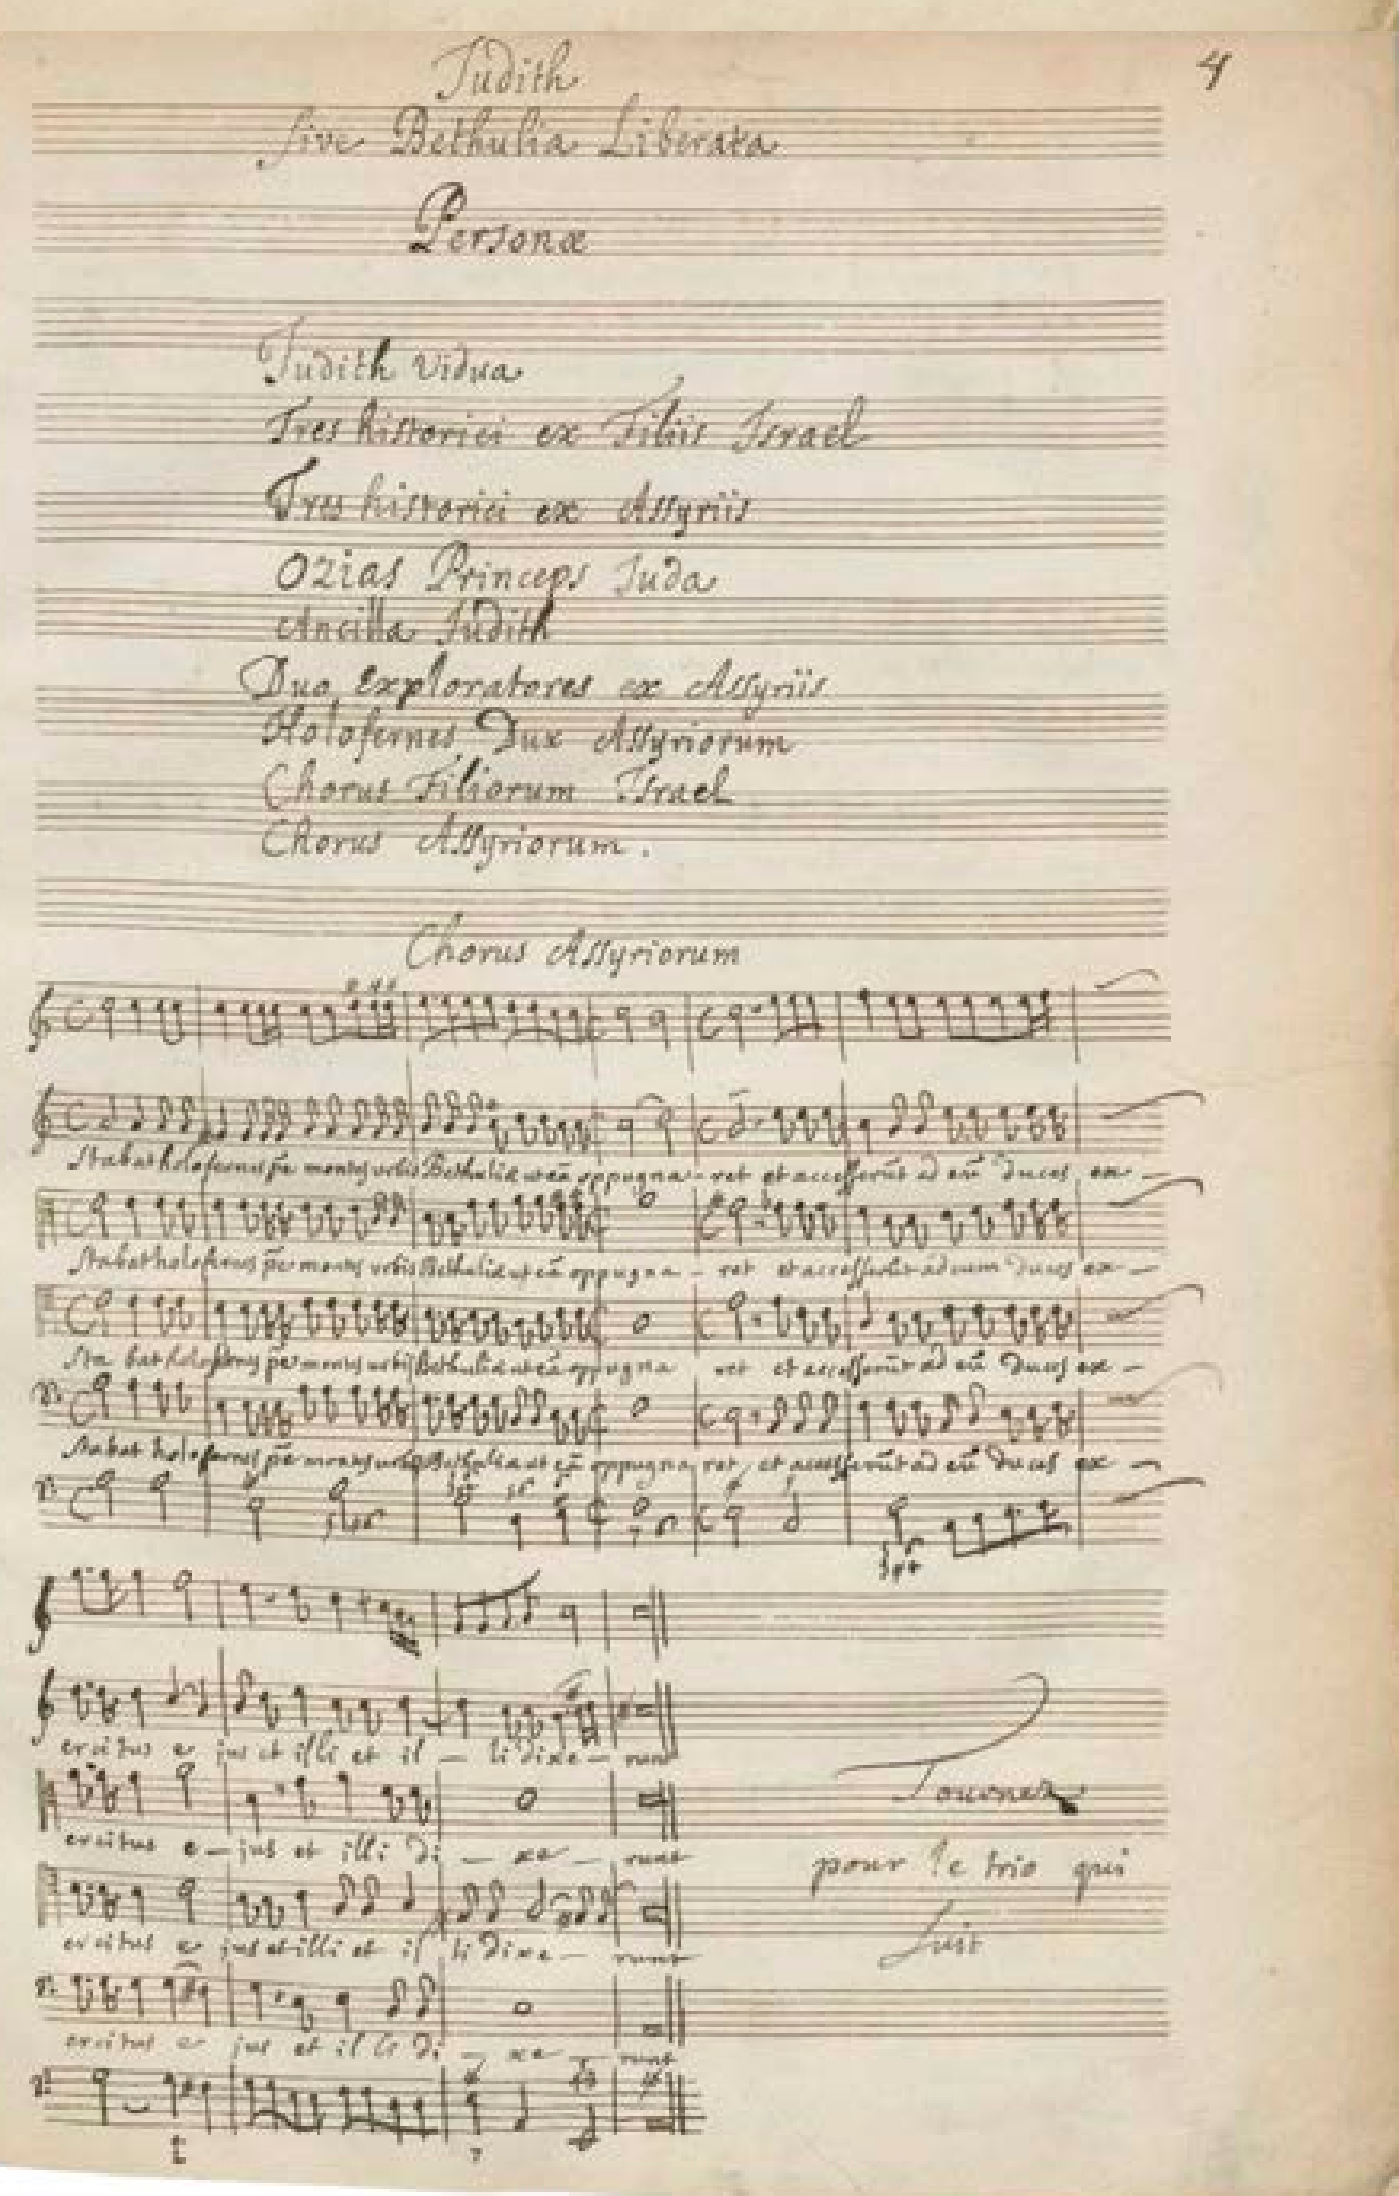 4
Judith
sive Bethulia Liberata
Personæ
Judith Vidua
Tres historici ex Filiis Israel
Tres historici ex Assyriis
Ozias Princeps Juda
Ancilla Judith
Duo Exploratores ex Assyriis
Holofernes Dux Assyriorum
Chorus Filiorum Israel
Chorus Assyriorum.
Chorus Assyriorum
Stabat holofernes montes urbis Bethuliæ ut eā oppugna-ret et accesserūt ad eū duces ex-
Stabat holofernes montes urbis Bethuliæ ut eā oppugna-ret et accesserūt ad eum duces ex-
Sta bat holofernes montes urbis Bethuliæ ut eā oppugna ret et accesserūt ad eū duces ex-
Stabat holofernes montes urbis Bethuliæ ut eā oppugna ret et accesserūt ad eū duces ex-
ercitus e jus et illi et il-li dixe-runt
ercitus e-jus et illi di-xe-runt
ercitus e jus et illi et il li dixe-runt
ercitus e jus et il li di-xe-runt
Tournez
pour le trio qui
suit